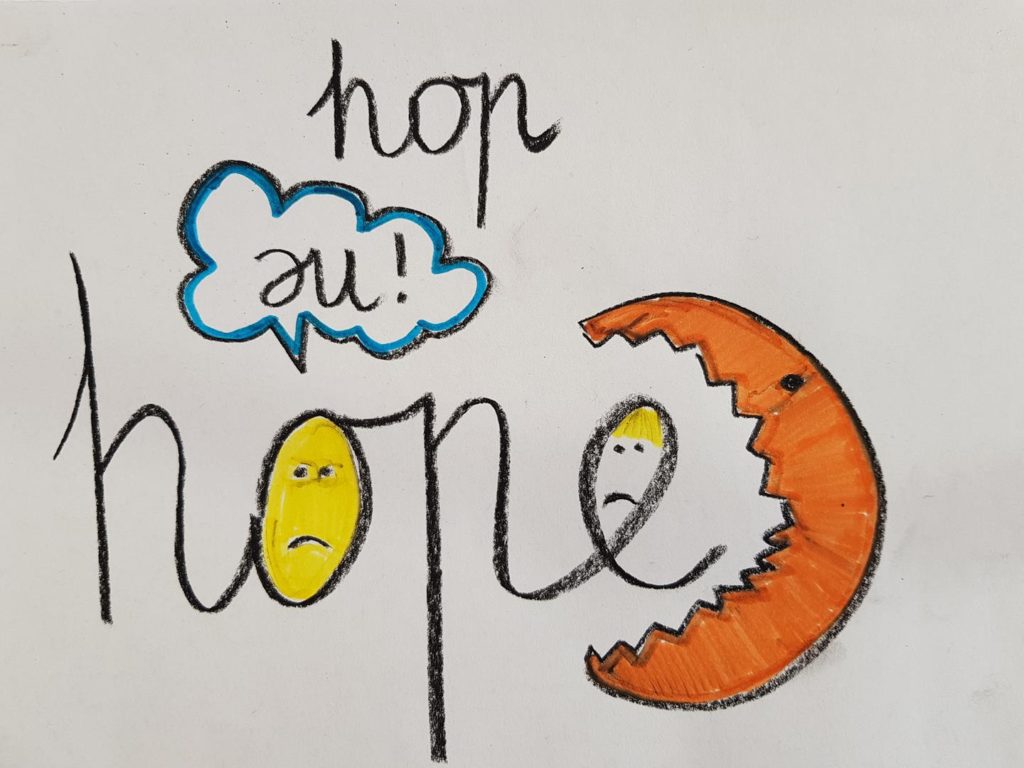 hop
əu!
hope